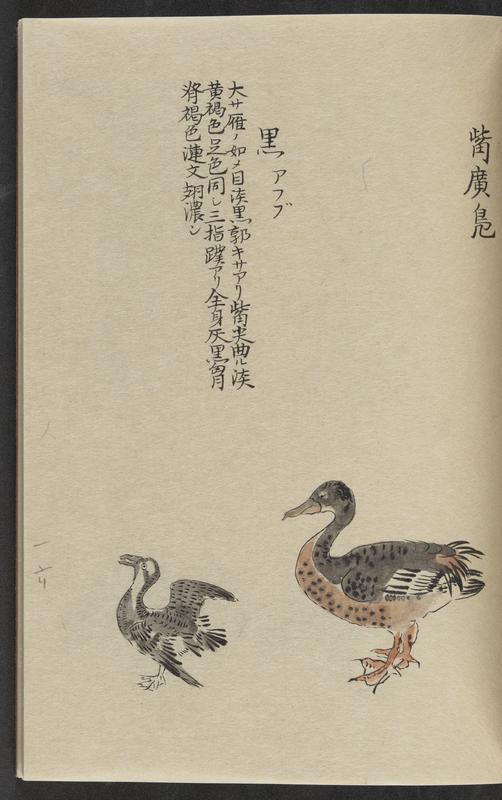 觜廣鳧
黒 アフブ
大サ雁ノ如メ目淡黒郭キサアリ觜尖曲ル淡
黄褐色足色同シ三指蹼アリ全身灰黒
褐色漣文翅濃シ